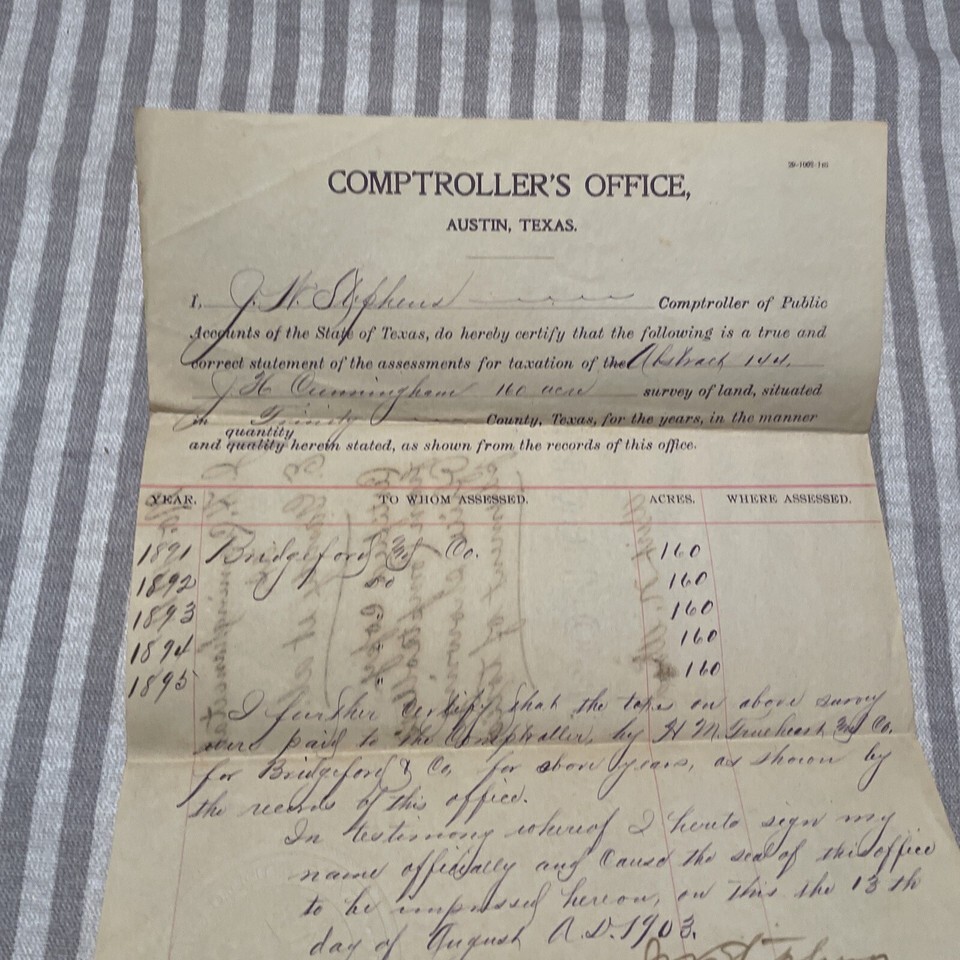 COMPTROLLER'S OFFICE,
AUSTIN, TEXAS.
I, J. W. Stephens Comptroller of Public
Accounts of the State of Texas, do hereby certify that the following is a true and
correct statement of the assessments for taxation of the Abstract 144.
J H Cunningham 160 acre survey of land, situated
in Trinity County, Texas, for the years, in the manner
quantity
and quality herein stated, as shown from the records of this office.
YEAR. TO WHOM ASSESSED. ACRES. WHERE ASSESSED.
1891 Bridgeford & Co. 160
1892 Do 160
1893 " 160
1894 " 160
1895 " 160
I further certify that the taxes on above survey
were paid to the Comptroller, by H M. Trueheart & Co.
for Bridgeford & Co. for above years, as shown by
the records of this office.
In testimony whereof I hereto sign my
name officially and cause the seal of this office
to be impressed hereon, on this the 13th
day of August A.D. 1903.
Stephens